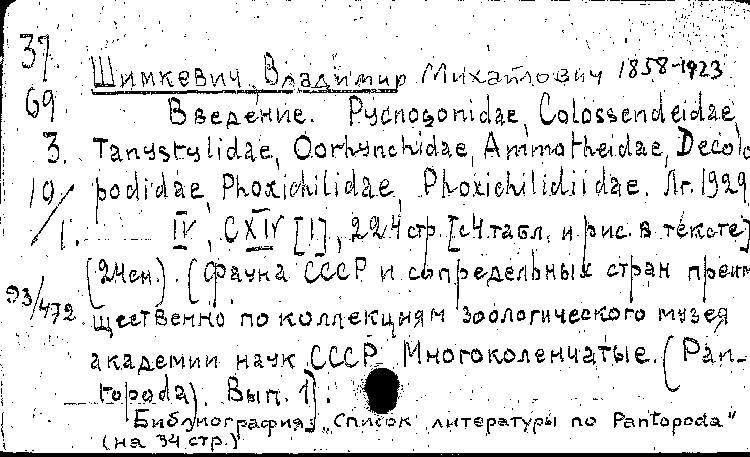 37. Шимкевич, Владимир Михайлович 1858-1923
69 Введение. Pycnogonidae, Colossendeidae,
3. Tanystylidae, Oorhynchidae, Ammotheidae, Decolo
10/ podidae, Phoxichilidae, Phoxichilidiidae. Лг. 1929
1. IV, CXIV [1], 224 стр. [с 4 табл. и рис. в тексте]
(24 см.). (Фауна СССР и сопредельных стран преим
93/472 щественно по коллекциям зоологического музея
академии наук СССР Многоколенчатые. (Pan-
topoda). Вып. 1).
Библиография: „Список литературы по Pantopoda"
(на 34 стр.)